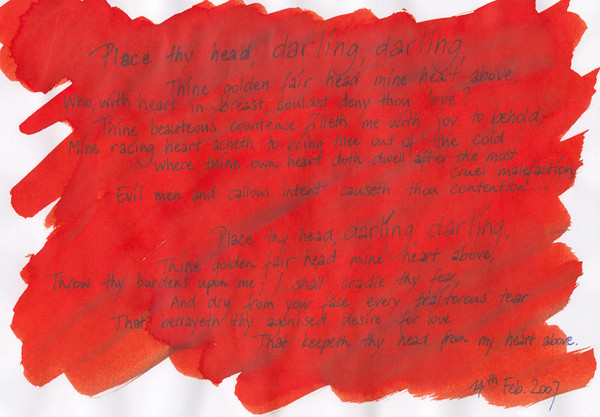 Place thy head, darling, darling,
Thine golden fair head mine heart above,
Who, with heart in breast, couldst deny thou love?
Thine beauteous countence filleth me with joy to behold;
Mine racing heart acheth to bring thee out of the cold
Where thine own heart doth dwell after the most
cruel malefaction,
Evil men and callous intent causeth thou contention...
Place thy head, darling, darling,
Thine golden fair head mine heart above,
Throw thy burdens upon me, I shall cradle thy fear,
And dry from your face every traitorous tear
That betrayeth thy agonised desire for love
That keepeth thy head from my heart above.
14th Feb. 2007